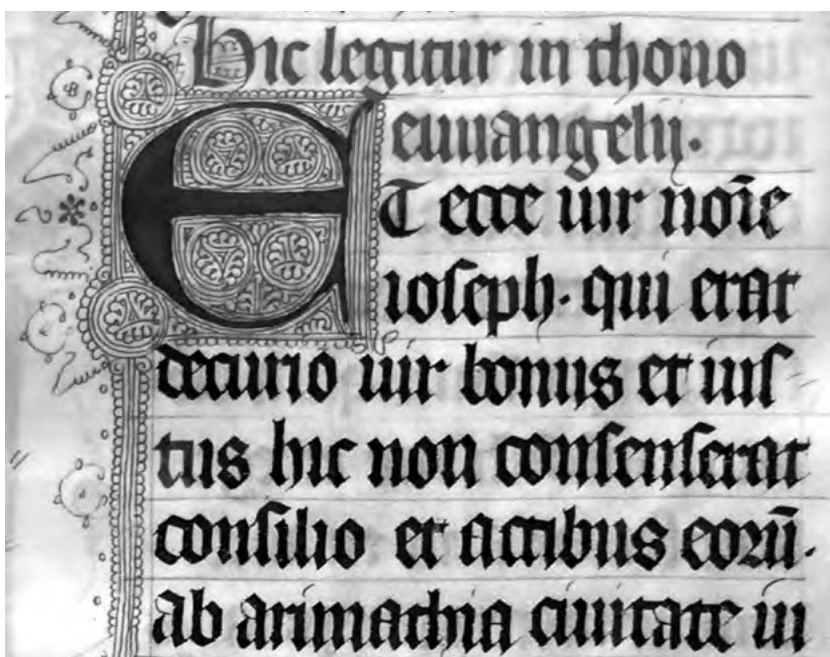 Hic legitur in thono
euuangelij.
ET ecce uir noīe
ioseph. qui erat
decurio uir bonus et ius
tus hic non consenserat
consilio et actibus eorū.
ab arimathia ciuitate iu